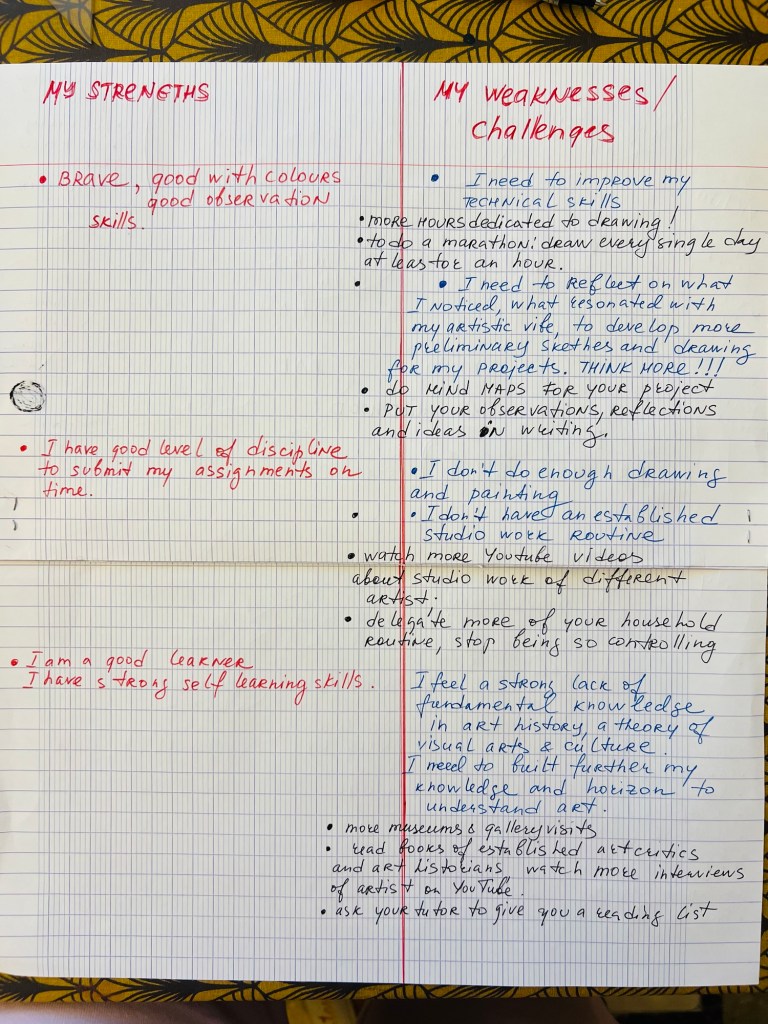 MY STRENGTHS
• BRAVE, good with colours
good observation
skills.
• I have good level of discipline
to submit my assignments on
time.
• I am a good learner
I have strong self learning skills.
MY Weaknesses/
Challenges
• I need to improve my
technical skills
• more hours dedicated to drawing!
• to do a marathon: draw every single day
at least for an hour.
• I need to reflect on what
I noticed, what resonated with
my artistic vibe, to develop more
preliminary skethes and drawing
for my projects. THINK MORE!!!
• do MIND MAPS FOR YOUR project
• PUT YOUR observations, reflections
and ideas in writing.
• I don't do enough drawing
and painting
• I don't have an established
studio work routine
• watch more Youtube videos
about studio work of different
artist.
• delegate more of your household
routine, stop being so controlling
I feel a strong lack of
fundamental knowledge
in art history, a theory of
visual arts & culture.
I need to built further my
knowledge and horizon to
understand art.
• more museums & gallery visits
• read books of established art critics
and art historians watch more interviews
of artist on YouTube.
• ask your tutor to give you a reading list